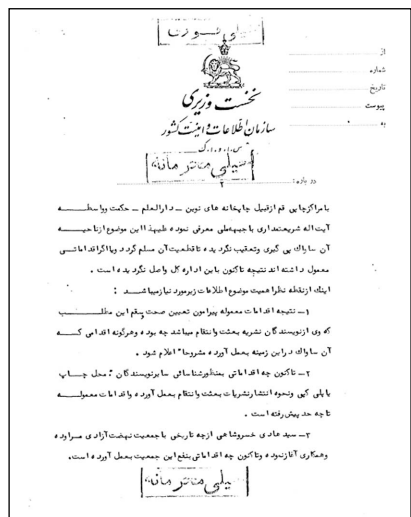 خیلی فوری
از
شماره
تاریخ
پیوست
به
نخست وزیری
سازمان اطلاعات و امنیت کشور
س.ا.و.ا.ک
خیلی محرمانه
۲
در باره:
با مراکز چاپی قم از قبیل چاپخانه های نوین – دارالعلم – حکمت و واسطه
آیت اله شریعتمداری با جبهه ملی معرفی نموده علیهذا این موضوع از ناحیه
آن ساواک پی گیری و تعقیب نگردیده تا قطعیت آن مسلم گردد و یا اگر اقداماتی
معمول داشته اند نتیجه تاکنون باین اداره کل واصل نگردیده است .
اینک از نقطه نظر اهمیت موضوع اطلاعات زیر مورد نیاز میباشد :
۱– نتیجه اقدامات معموله پیرامون تعیین صحت و سقم این مطلب
که وی از نویسندگان نشریه بعثت و انتقام میباشد چه بوده و هرگونه اقدامی که
آن ساواک در این زمینه بعمل آورده مشروحا" اعلام شود .
۲– تاکنون چه اقداماتی بمنظور شناسائی سایر نویسندگان ؛ محل چاپ
یا پلی کپی و نحوه انتشار نشریات بعثت و انتقام بعمل آورده و اقدامات معموله
تا چه حد پیش رفته است .
۳– سید هادی خسروشاهی از چه تاریخی با جمعیت نهضت آزادی مراوده
و همکاری آغاز نموده و تاکنون چه اقداماتی بنفع این جمعیت بعمل آورده است.
خیلی محرمانه